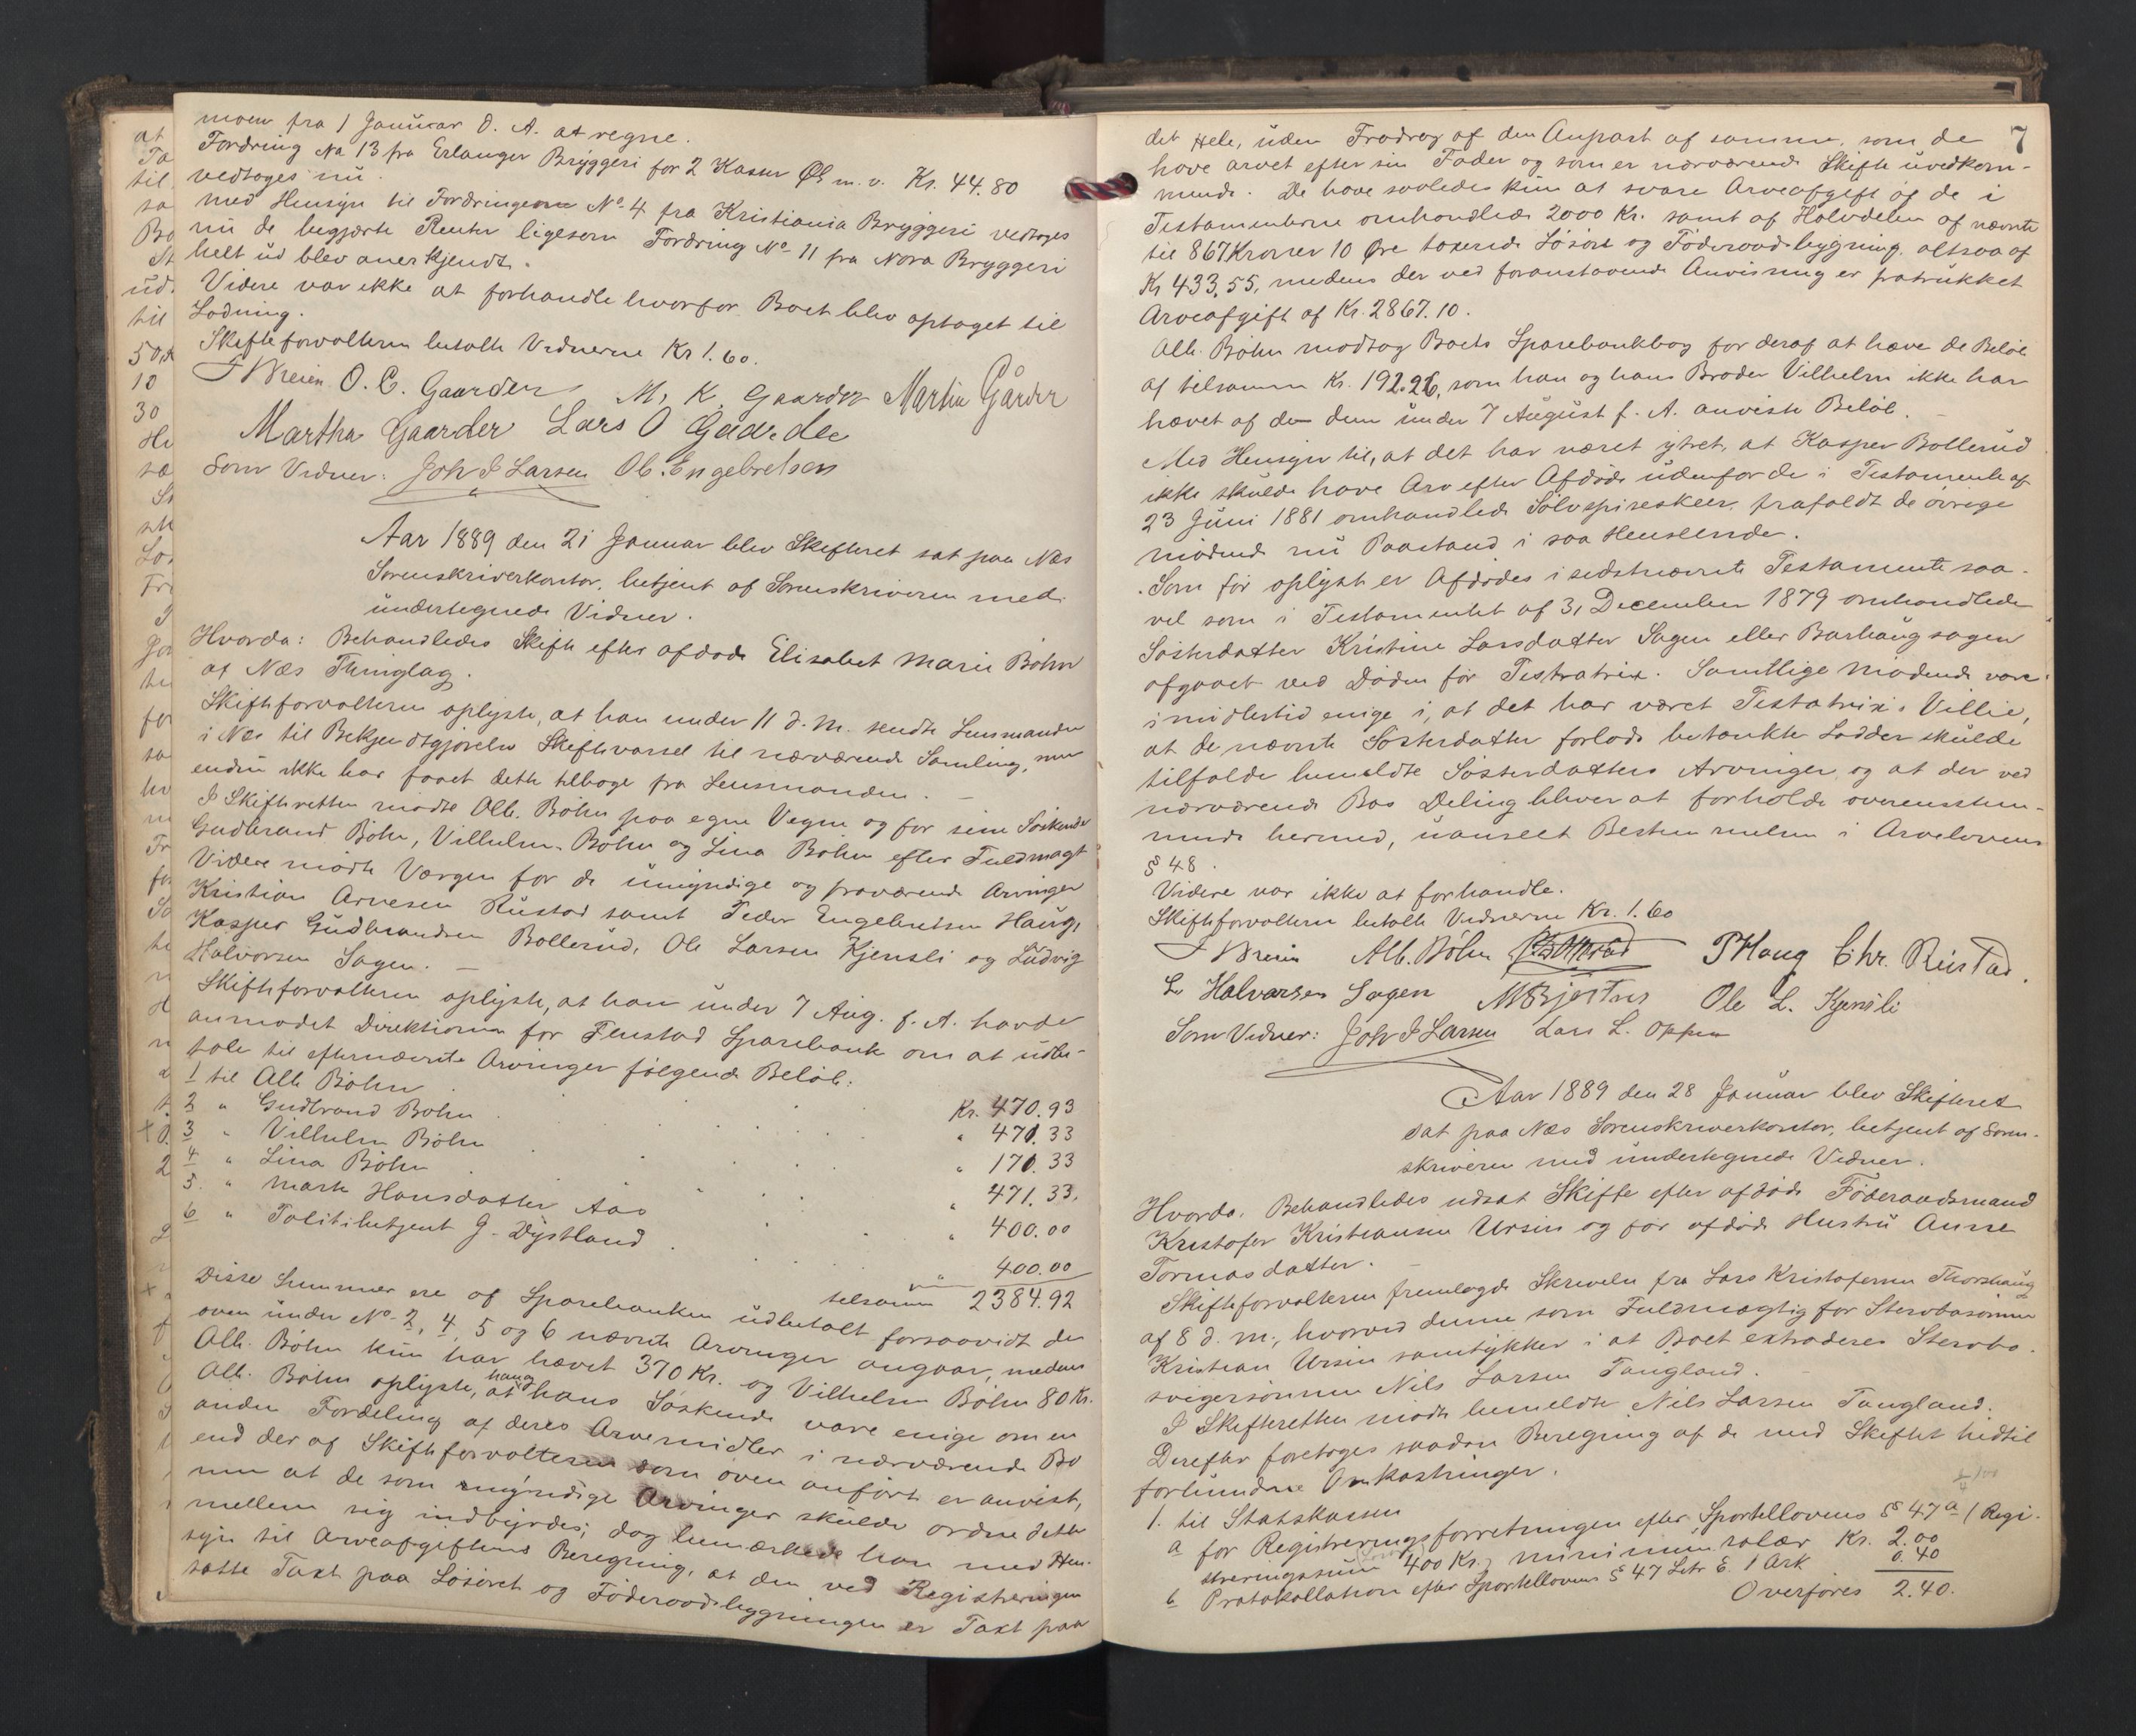 moen fra 1 Januar d. A. at regne.
Fordring No 13 fra Erlanger Bryggeri for 2 Kasser Øl m. v. Kr. 44.80
vedtoges nu.
Med Hensyn til Fordringerne No 4 fra Kristiania Bryggeri vedtoges
nu de begjærte Renter ligesom Fordring No 11 fra Nora Bryggeri
helt ud blev anerkjendt.
Videre var ikke at forhandle hvorfor Boet blev optaget til
Lodning.
Skifteforvalteren betalte Vidnerne Kr 1.60.
O. C. Gaarder M. K. Gaarder Martin Gårder
Martha Gaarder Lars O Gaarder
Som Vidner: Joh J Larsen Ol. Engebretsen
Aar 1889 den 21 Januar blev Skifteret sat paa Næs
Sorenskriverkontor, betjent af Sorenskriveren med
undertegnede Vidner.
Hvorda: Behandledes Skifte efter afdøde Elisabet Marie Bøhn
af Næs Thinglag.
Skifteforvalteren oplyste, at han under 11 d. M. sendte Lensmanden
i Næs til Bekjendtgjørelse Skiftevarsel til nærværende Samling, men
endnu ikke har faaet dette tilbage fra Lensmanden. –
I Skifteretten mødte Alb. Bøhn paa egne Vegne og for sine Søskende
Gudbrand Bøhn, Vilhelm Bøhn og Lina Bøhn efter Fuldmagt
Videre mødte Værgen for de umyndige og fraværende Arvinger
Kristian Arnesen Rustad samt Peder Engebretsen Haug,
Kasper Gudbrandsen Bollerud, Ole Larsen Kjensli og Ludvig
Halvorsen Sagen. –
Skifteforvalteren oplyste, at han under 7 Aug. f. A. havde
anmodet Direktionen for Fenstad Sparebank om at udbe-
tale til efternævnte Arvinger følgende Beløb:
1 til Alb Bøhn Kr. 470.93
2 " Gudbrand Bøhn " 471.33
3 " Vilhelm Bøhn " 171.33
4 " Lina Bøhn " 471.33.
5. " Marte Hansdatter Aas " 400.00
6 " Politibetjent G. Dystland " 400.00
tilsammen 2384.92
Disse Summer ere af Sparebanken udbetalt forsaavidt de
oven under No. 2, 4, 5 og 6 nævnte Arvinger angaar, medens
Alb. Bøhn kun har hævet 370 Kr. og Vilhelm Bøhn 80 Kr.
Alb. Bøhn oplyste, at han og hans Søskende vare enige om en
anden Fordeling af deres Arvemidler i nærværende Bo
end der af Skifteforvalteren som oven anført er anvist,
men at de som myndige Arvinger skulde ordne dette
mellem sig indbyrdes; dog bemærkede han med Hen-
syn til Arveafgiftens Beregning, at den ved Registreringen
satte Taxt paa Løsøret og Føderaadsbygningen er Taxt paa
7
det Hele, uden Fradrag af den Anpart af samme, som de
have arvet efter sin Fader og som er nærværende Skifte uvedkom-
mende. De have saaledes kun at svare Arveafgift af de i
Testamenterne omhandlede 2000 Kr. samt af Halvdelen af nævnte
til 867 Kroner 10 Øre taxerede Løsøre og Føderaadsbygning, altsaa af
Kr 433.55, medens der ved foranstaaende Anvisning er fratrukket
Arveafgift af Kr. 2867.10.
Alb. Bøhn modtog Boets Sparebankbog for deraf at hæve de Beløb
af tilsammen Kr. 192.26, som han og hans Broder Vilhelm ikke har
hævet af de dem under 7 August f. A. anviste Beløb. –
Med Hensyn til, at det har været ytret, at Kasper Bollerud
ikke skulde have Arv efter Afdøde udenfor de i Testamente af
23 Juni 1881 omhandlede Sølvspiseskeer, frafaldt de øvrige
mødende nu Paastand i saa Henseende.
Som før oplyst er Afdødes i sidstnævnte Testamente saa-
vel som i Testamentet af 31 December 1879 omhandlede
Søsterdatter Kristine Larsdatter Sagen eller Barhaugsagen
afgaaet ved Døden før Testratrix. Samtlige mødende vare
imidlertid enige i, at det har været Testatrix's Villie,
at de nævnte Søsterdatter forlods betænkte Lodder skulde
tilfalde bemeldte Søsterdatters Arvinger, og at der ved
nærværende Bos Deling bliver at forholde overensstem-
mende hermed, uanseet Bestemmelsen i Arvelovens
§ 48.
Videre var ikke at forhandle.
Skifteforvalteren betalte Vidnerne Kr. 1.60
Alb. Bøhn P Haug Chr. Rustad.
L. Halvorsen Sagen Ole L. Kjensli
Som Vidner: Joh J Larsen Lars L. Oppen
Aar 1889 den 28 Januar blev Skifteret
sat paa Næs Sorenskriverkontor, betjent af Soren-
skriveren med undertegnede Vidner.
Hvorda. Behandledes udsat Skifte efter afdøde Føderaadsmand
Kristofer Kristiansen Ursin og før afdøde Hustru Anne
Tormasdatter. –
Skifteforvalteren fremlagde Skrivelse fra Lars Kristofersen Thorshaug
af 8 d. M., hvorved denne som Fuldmægtig for Stervbosønnen
Kristian Ursin samtykker i at Boet extraderes Stervbo-
svigersønnen Nils Larsen Tangland. –
I Skifteretten mødte bemeldte Nils Larsen Tangland.
Derefter foretoges saadan Beregning af de med Skiftet hidtil
forbundne Omkostninger.
1. til Statskassen
a for Registreringsforretningen efter Sportellovens § 47 a (Regi-
streringssum 400 Kr.) minimumssalær Kr. 2.00
b Protokollation efter Sportellovens § 47 Litr E. 1 Ark 0.40
Overføres 2.40.